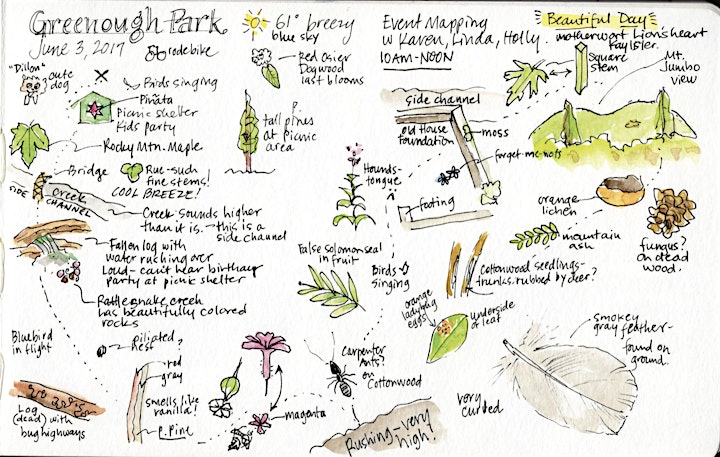 Greenough Park
June 3, 2017
rode bike
61° breezy
blue sky
Event Mapping
w Karen, Linda, Holly.
10AM-NOON
Beautiful Day,
motherwort Lion's heart
Square
stem
Mt.
Jumbo
view
"Dillon"
cute
dog
Birds singing
Piñata
Picnic shelter
Kids party
Rocky Mtn. Maple
Red Osier
Dogwood
last blooms
tall pines
at Picnic
area
side channel
old House
Foundation
moss
forget-me-nots
footing
Bridge
Rue-such
fine stems!
COOL BREEZE!
SIDE
Creek
CHANNEL
Creek sounds higher
than it is. - this is a
side channel
Hounds-
tongue
orange
lichen
mountain
ash
fungus?
on dead
wood.
Fallen log with
water rushing over
Loud- can't hear birthday
party at picnic shelter
False solomonseal
in fruit
Birds
singing
Cottonwood seedlings-
trunks, rubbed by deer?
Rattlesnake creek
has beautifully colored
rocks
orange
ladybug
eggs
underside
of leaf
smokey
gray feather-
found on
ground.
Bluebird
in flight
piliated
nest?
red
gray
smells like
vanilla!
P. Pine
Carpenter
Ants?
on
Cottonwood
magenta
Log
(dead) with
bug highways
Rushing-very
high!
very
curved